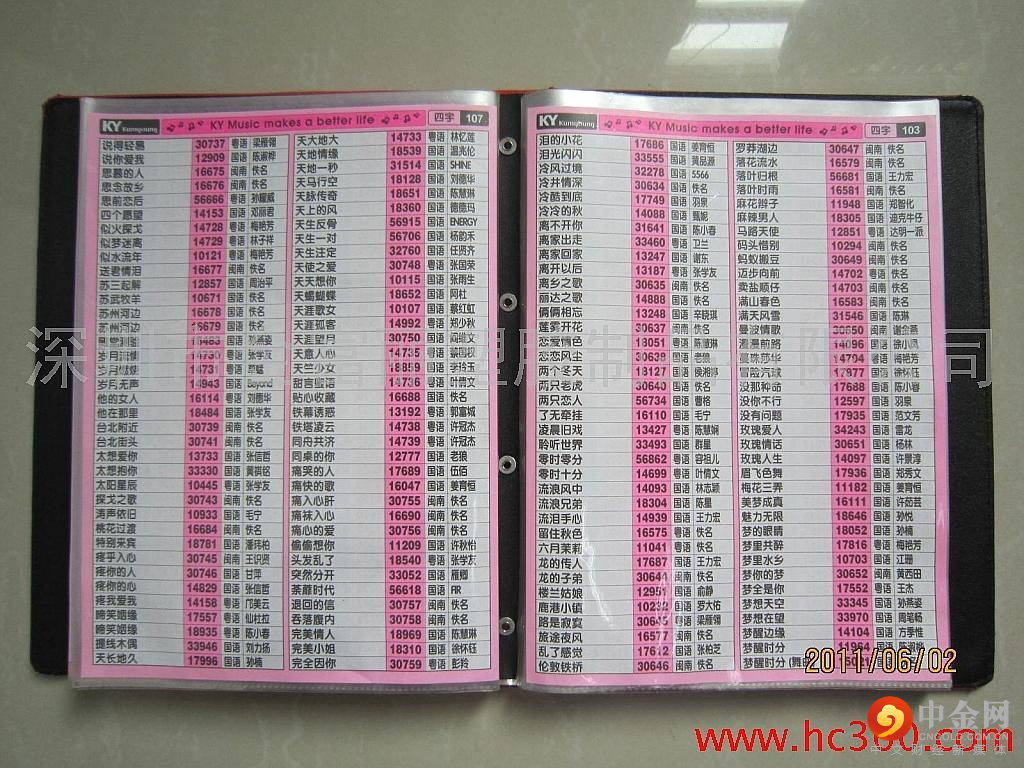 KY Kunyoung KY Music makes a better life 四字 107
说得轻易 30737 粤语 梁雁翎
说你爱我 12909 国语 陈淑桦
思慕的人 16675 闽南 佚名
思念故乡 16676 闽南 佚名
思前恋后 56666 粤语 孙耀威
四个愿望 14153 国语 邓丽君
似火探戈 14728 粤语 梅艳芳
似梦迷离 14729 粤语 林子祥
似水流年 10121 粤语 梅艳芳
送君情泪 16677 闽南 佚名
苏三起解 12857 国语 周治平
苏武牧羊 10671 国语 佚名
苏州河边 16678 国语 佚名
苏州河边 16679 国语 佚名
国语 孙燕姿
岁月流情 14730 粤语 张学友
岁月无声 14943 国语 Beyond
他的女人 16114 粤语 刘德华
他在那里 18484 国语 张学友
台北附近 30739 闽南 佚名
台北街头 30741 闽南 佚名
太想爱你 13733 国语 张信哲
太想抱你 33330 国语 黄祺铭
太阳星辰 10445 粤语 张学友
探戈之歌 30743 闽南 佚名
涛声依旧 10933 国语 毛宁
桃花过渡 16684 闽南 佚名
特别来宾 18781 国语 潘玮柏
疼乎入心 30745 闽南 王识贤
疼你的人 30746 国语 甘萍
疼你的心 14829 国语 张信哲
疼我爱我 14158 粤语 邝美云
啼笑姻缘 17557 粤语 仙杜拉
啼笑姻缘 18935 粤语 陈小春
提线木偶 33946 国语 刘力扬
天长地久 17996 国语 孙楠
天大地大 14733 粤语 林忆莲
天地情缘 18539 国语 温兆伦
天地一秒 31514 国语 SHINE
天马行空 18128 国语 刘德华
天脉传奇 18651 国语 陈慧琳
天上的风 18360 国语 德德玛
天生反骨 56915 国语 ENERGY
天生一对 56706 国语 杨韵禾
天生注定 32760 国语 任贤齐
天使之爱 30748 粤语 张国荣
天天想你 10115 国语 张雨生
天蝎蝴蝶 18652 国语 阿杜
天涯歌女 10107 国语 蔡红虹
天涯孤客 14992 粤语 郑少秋
天涯望月 30750 闽南 阎维文
天意人心 14735 粤语 蔡国权
天竺少女 18859 国语 李玲玉
甜言蜜语 14736 粤语 叶倩文
贴心收藏 16688 国语 佚名
铁幕诱惑 13192 粤语 郭富城
铁塔凌云 14738 粤语 许冠杰
同舟共济 14739 粤语 许冠杰
同桌的你 12777 国语 老狼
痛哭的人 17689 国语 伍佰
痛快的歌 16047 国语 姜育恒
痛入心肝 30755 闽南 佚名
痛袜入心 16690 闽南 佚名
痛心的爱 30756 闽南 佚名
偷偷想你 11209 国语 许秋怡
头发乱了 18540 粤语 张学友
突然分开 33052 国语 雁卿
荼蘼时代 56618 国语 FIR
退回的信 30757 闽南 佚名
吞落腹内 30758 闽南 佚名
完美情人 18969 国语 陈慧琳
完美小姐 18310 国语 徐怀钰
完全因你 30759 粤语 彭羚
KY Kunyoung KY Music makes a better life 四字 103
泪的小花 17686 国语 姜育恒
泪光闪闪 33555 国语 黄品源
冷风过境 32278 国语 5566
冷井情深 30634 国语 佚名
冷酷到底 17749 国语 羽泉
冷冷的秋 14088 国语 甄妮
离不开你 31641 国语 陈小春
离家出走 33460 粤语 卫兰
离家回家 13247 国语 谢东
离开以后 13187 粤语 张学友
离乡之歌 30635 闽南 佚名
丽达之歌 14888 国语 佚名
俩俩相忘 13248 国语 辛晓琪
莲雾开花 30637 闽南 佚名
恋爱情色 18051 粤语 陈慧琳
恋恋风尘 30638 国语 老狼
两个冬天 18127 国语 侯湘婷
两只老虎 30640 国语 佚名
两只恋人 56734 国语 曹格
了无牵挂 16110 国语 毛宁
凌晨旧戏 13427 粤语 陈慧娴
聆听世界 33493 国语 群星
零时零分 56862 粤语 容祖儿
零时十分 14699 粤语 叶倩文
流浪风中 14093 国语 林志颖
流浪兄弟 18304 国语 陈星
流泪手心 14939 国语 王力宏
留住秋色 16575 粤语 佚名
六月茉莉 11041 粤语 佚名
龙的传人 17687 国语 王力宏
龙的子弟 闽南 佚名
楼兰姑娘 国语 俞静
鹿港小镇 国语 罗大佑
路是寂寞 粤语 梁雁翎
旅途夜风 闽南 佚名
乱了感觉 国语 张柏芝
伦敦铁桥 30646 闽南 佚名
罗莽湖边 30647 闽南 佚名
落花流水 16579 闽南 佚名
落叶归根 56681 国语 王力宏
落叶时雨 16581 闽南 佚名
麻花辫子 11948 国语 郑智化
麻辣男人 18305 国语 迪克牛仔
马路天使 12851 粤语 达明一派
码头惜别 10294 闽南 佚名
蚂蚁搬豆 30649 闽南 佚名
迈步向前 14702 粤语 佚名
卖盐顺仔 14703 闽南 佚名
满山春色 16583 闽南 佚名
满天风雪 31546 国语 陈琳
曼波情歌 30650 闽南 谢金燕
漫漫前路 14096 国语 徐小凤
曼珠莎华 14794 粤语 梅艳芳
冒险汽球 17877 国语 徐怀钰
没那种命 17688 国语 陈小春
没你不行 12597 国语 羽泉
没有问题 17935 国语 范文芳
玫瑰爱人 34243 国语 雷龙
玫瑰情话 30651 国语 杨林
玫瑰人生 14097 国语 许景淳
眉飞色舞 17936 国语 郑秀文
梅花三弄 11182 国语 姜育恒
美梦成真 16111 国语 许茹芸
魅力无限 18646 国语 孙悦
梦的眼睛 18052 国语 孙楠
梦里共醉 17816 粤语 梅艳芳
梦里水乡 10703 国语 江珊
梦你的梦 30652 闽南 黄西田
梦全是你 17552 粤语 王杰
梦想天空 33345 国语 孙燕姿
梦想在望 33970 国语 周笔畅
梦醒边缘 14104 国语 方季惟
梦醒时分 11964 国语 陈淑桦
梦醒时分
2011/06/02
中金网
CNGOLD.COM.CN
中文财经新媒体
www.hc360.com